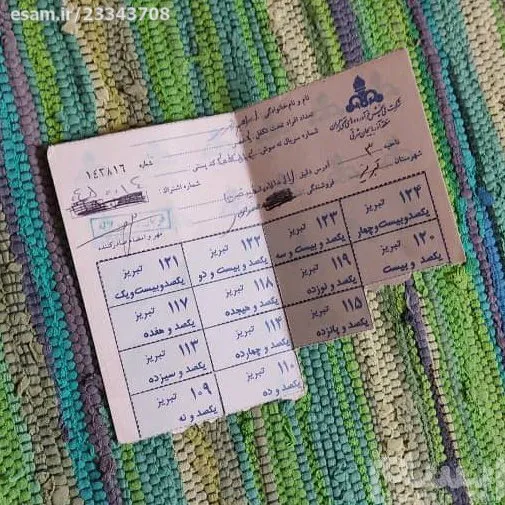 esam.ir/23343708
شرکت ملی پخش فرآورده های نفتی ایران
منطقه آذربایجان شرقی
نام و نام خانوادگی
تعداد افراد تحت تکفل
شماره سریال ته سوش
کد پستی
شماره ۱۴۳۸۱۶
ناحیه ۳
شهرستان تبریز
آدرس دقیق
شماره اشتراک
فروشندگی
مهر و امضاء صادرکننده
۱۲۴ تبریز
یکصدوبیست وچهار
۱۲۳ تبریز
یکصد و بیست و سه
۱۲۲ تبریز
یکصد و بیست و دو
۱۲۱ تبریز
یکصدوبیست ویک
۱۲۰ تبریز
یکصد و بیست
۱۱۹ تبریز
یکصد و نوزده
۱۱۸ تبریز
یکصد و هیجده
۱۱۷ تبریز
یکصد و هفده
۱۱۵ تبریز
یکصد و پانزده
۱۱۴ تبریز
یکصد و چهارده
۱۱۳ تبریز
یکصد و سیزده
۱۱۰ تبریز
یکصد و ده
۱۰۹ تبریز
یکصد و نه